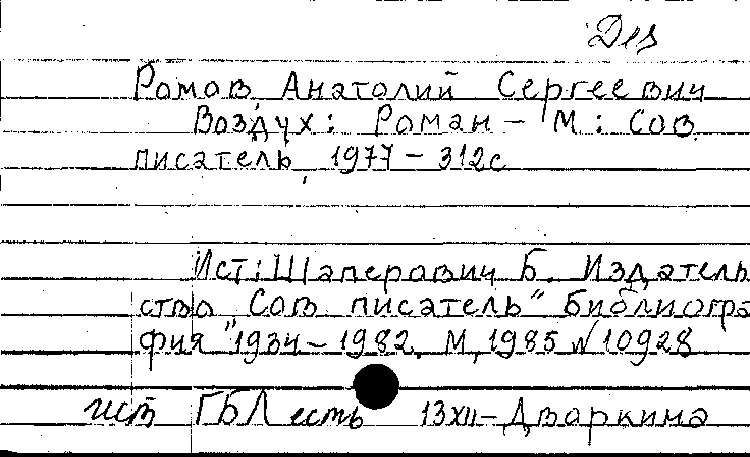 Дез
Ромов, Анатолий Сергеевич
Воздух: Роман – М: Сов.
писатель, 1977 – 312с
Ист: Шаперович Б. Издатель
ство Сов. писатель" Библиогра
фия "1934 – 1982. М, 1985 № 10928
ГБЛ есть 13 XII – Дворкина